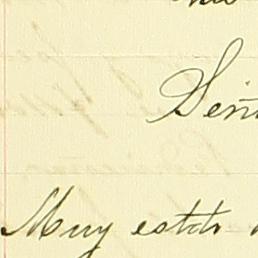 Señ
Muy estdo